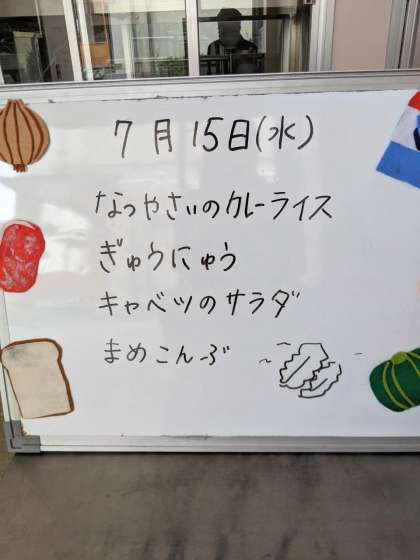 7月15日(水)
なつやさいのカレーライス
ぎゅうにゅう
キャベツのサラダ
まめこんぶ